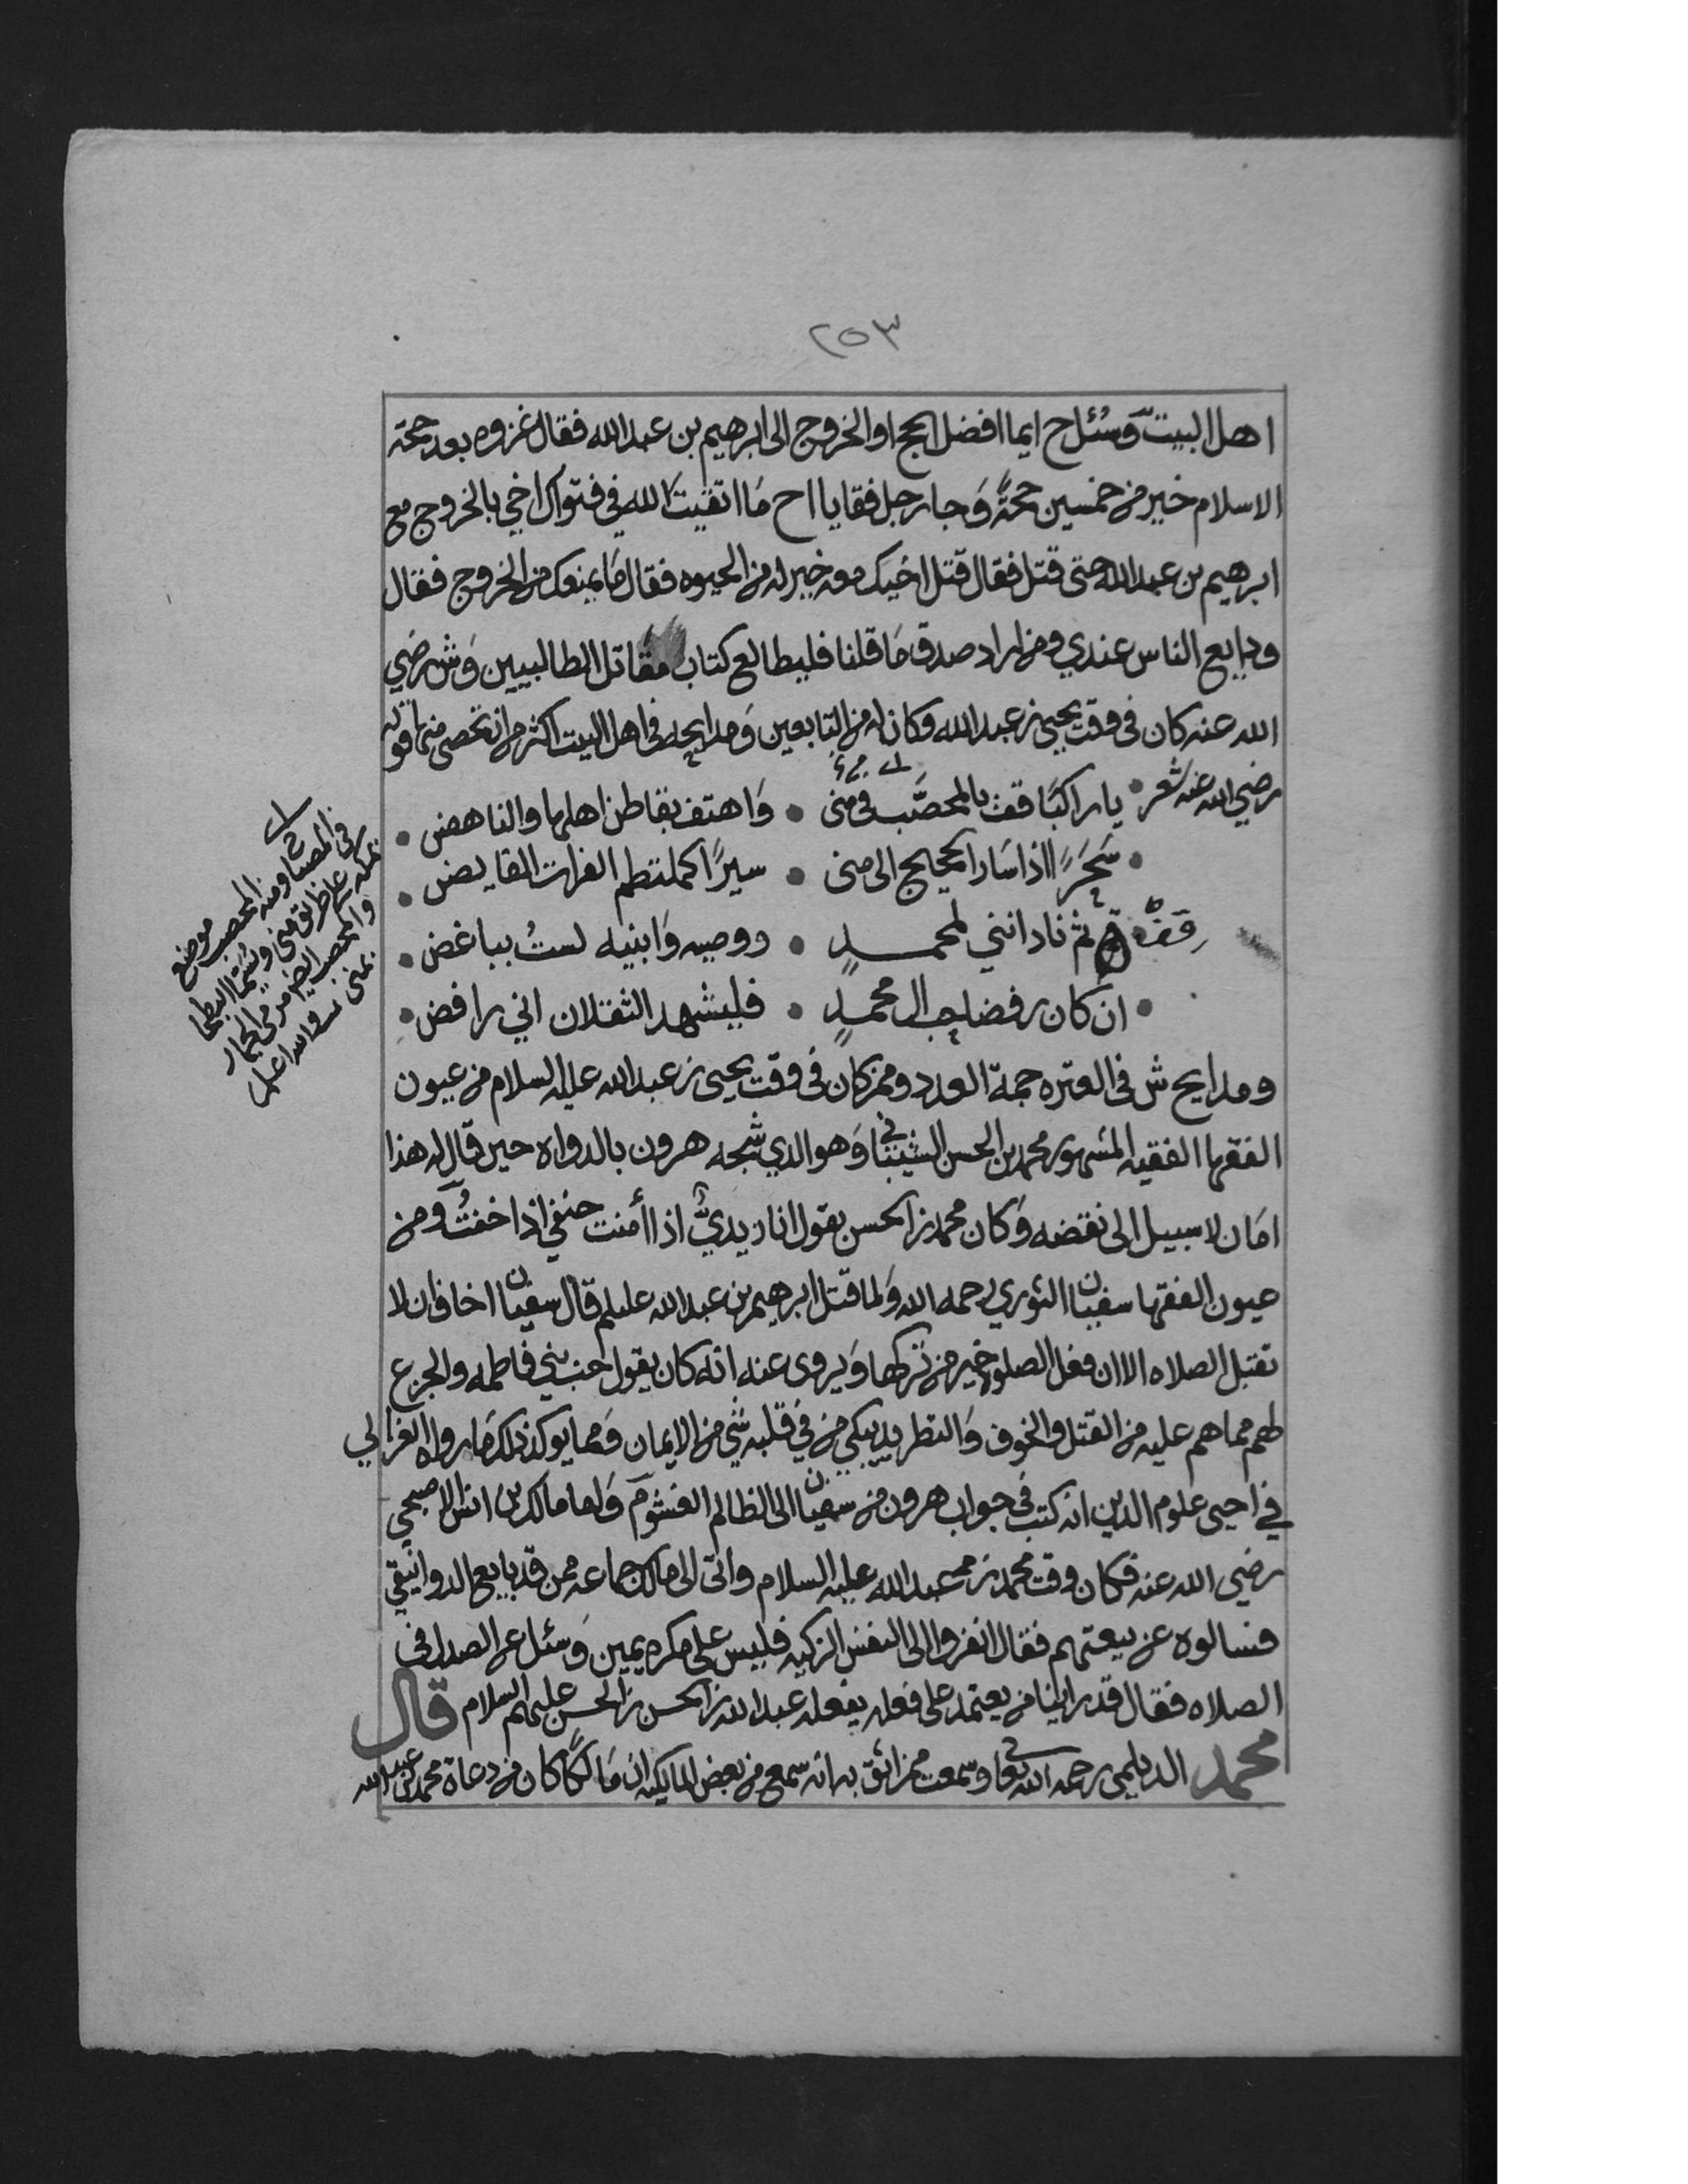 ٢٥٣
اهل البيت وسُئل ح ايما افضل الحج او الخروج الى ابرهيم بن عبدالله فقال غزوه بعد حجة
الاسلام خير من خمسين حجةً وَجا رجل فقا يا اح مَا اتقيتَ الله في فتواك اخي بالخروج مع
ابرهيم بن عبدالله حتى قتل فقال قتل اخيك معه خير له من الحيوه فقال مَا يمنعك من الخروج فقال
ودايع الناس عندي ومن اراد صدق مَا قلنا فليطالع كتاب مقاتل الطالبيين وَش رضي
الله عنه كان في وقت يحيى بن عبدالله وكان له من التابعين وَمدايحه في اهل البيت اكثر من ان تحصى منها قوله
رضي الله عنه شعر • يا راكبًا قف بالمحصَّب في منى • وَاهتف بقاطن اهلها والناهض •
• سَحَرًا اذا سَار الحجيج الى منى • سيرًا كملتطم الفرات الفايض •
قف ثم ناد انني لمحمدٍ • ووصيه وَابنيه لستُ بباغض •
• ان كان رفضا حب ال محمدٍ • فليشهد الثقلان اني رافض •
ومدايح ش في العتره جمة العدد وممن كان في وقت يحيى بن عبدالله عليه السلام من عيون
الفقها الفقيه المشهور محمد بن الحسن الشيباني وَهو الذي شجه هرون بالدواه حين قال له هذا
امَان لا سبيل الى نقضه وَكان محمد بن الحسن يقول انا زيديٌّ اذا أمنت حنفي اذا خفتُ وَمن
عيون الفقها سفيان الثوري رحمه الله وَلما قتل ابرهيم بن عبدالله عليلم قال سفيان اخاف ان لا
تقبل الصلاه الا ان فعل الصلوه خير من تركها وَيروى عنه انه كان يقول حب بني فاطمه والجزع
لهم مما هم عليه من القتل والخوف وَالتطريد يبكي من في قلبه شي من الايمان وَمما يوكد ذلك مَا رواه الغزالي
في احيى علوم الدين انه كتب في جواب هرون من سفيان الى الظالم الغشوم وَاما مالك بن انس الاصبحي
رضي الله عنه فكان وقت محمد بن عبدالله عليه السلام واتى الى مالك جماعه ممن قد بايع الدوانيقي
فسالوه عن بيعتهم فقال انفروا الى النفس الزكيه فليس على مكره يمين وَسئل عن السدل في
الصلاه فقال قد راينا من يعتمد على فعله يفعله عبدالله بن الحسن بن الحسن عليهم السلام قال
محمد الديلمي رحمه الله تعا وسمعت ممن اثق به انه سمع من بعض المالكيه ان مَالكًا كان من دعاة محمد بن عبدالله
المحصب موضع
بمكه على طريق منى ويسما البطحا
والمحصب ايضا مرمى الجمار
بمنى والله اعلم